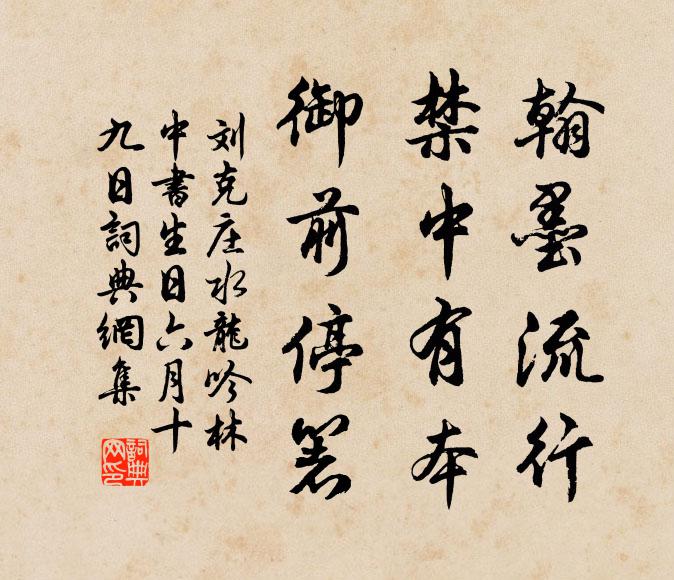 翰墨流行
禁中有本
御前停箸
刘克庄水龍吟林
中書生日六月十
九日詞典網集
詞典
网印